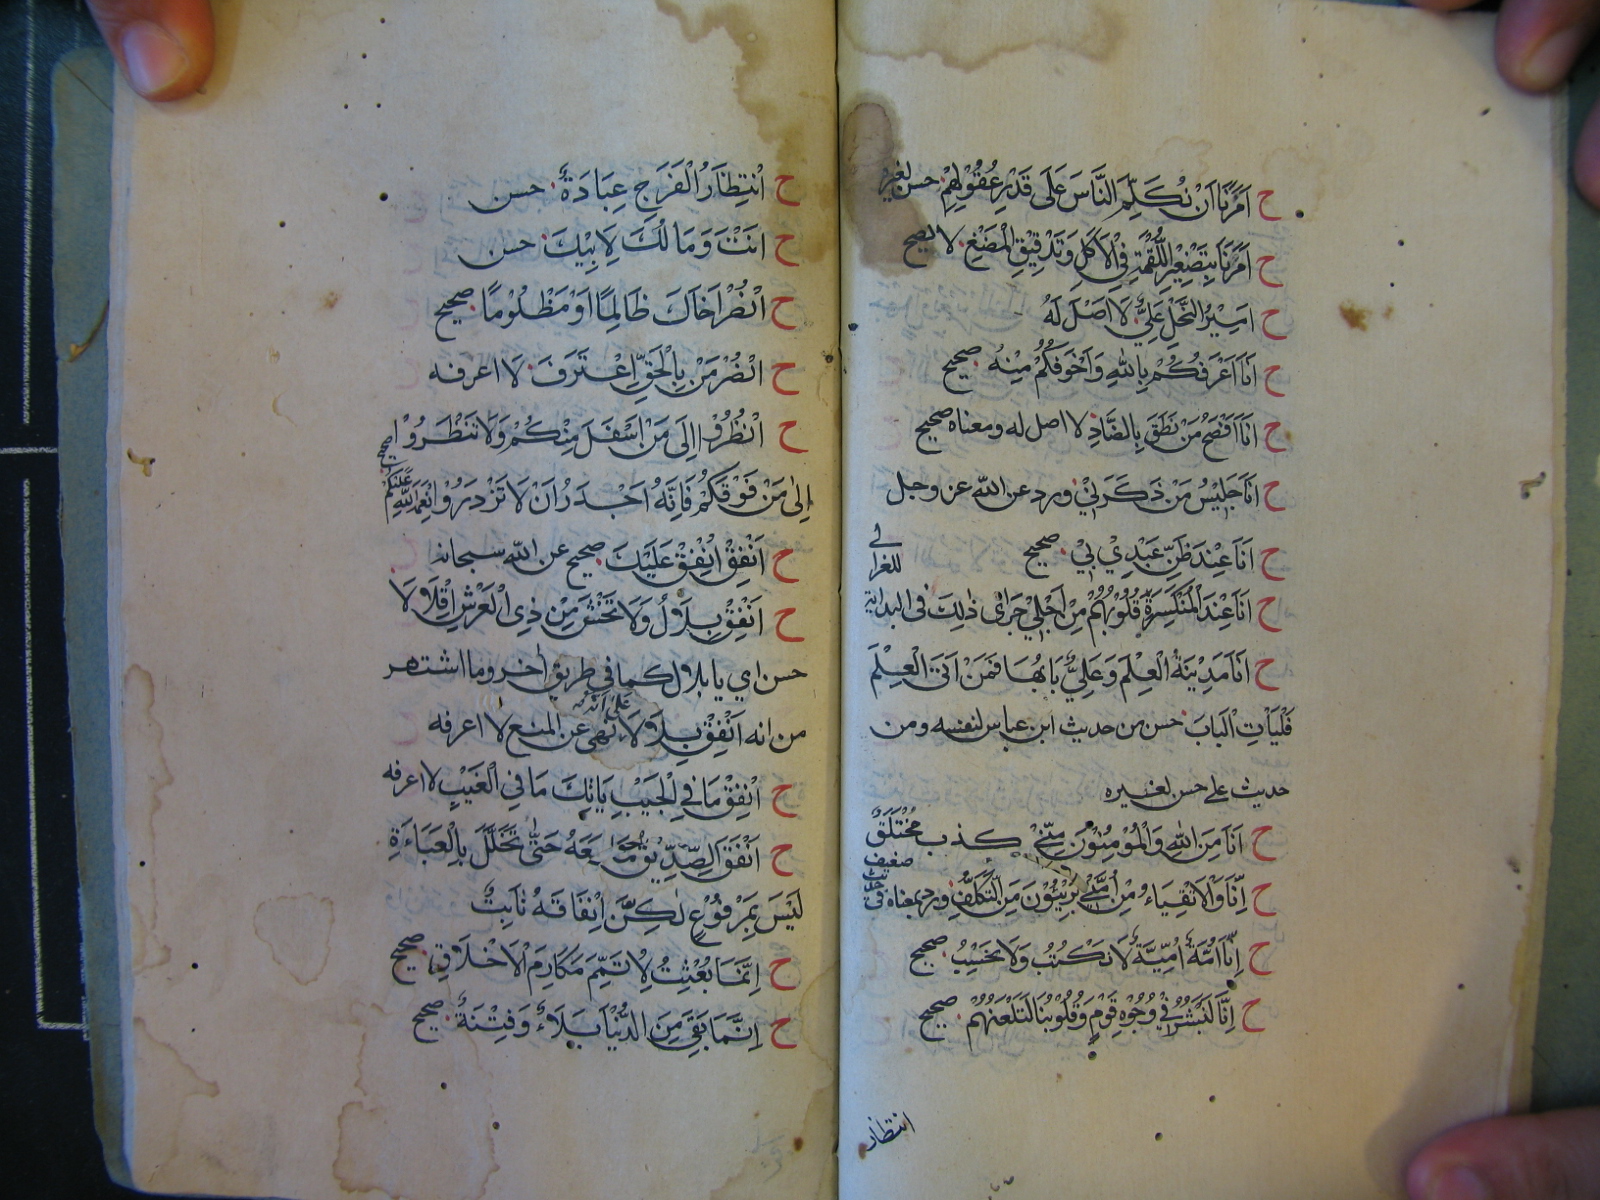 ح اَمَرَنَا اَنْ نُكَلِّمَ النَّاسَ عَلَى قَدْرِ عُقُوْلِهِمْ حسن لغيره
ح اَمَرَنَا بِتَصْغِيْرِ اللُّقْمَةِ فِي الْاَكْلِ وَتَدْقِيْقِ الْمَضْغِ لا يصح
ح اَمِيْرُ النَّحْلِ عَلِيٌّ لَا اَصْلَ لَهُ
ح اَنَا اَعْرَفُكُمْ بِاللّٰهِ وَاَخْوَفُكُمْ مِنْهُ صحيح
ح اَنَا اَفْصَحُ مَنْ نَطَقَ بِالضَّادِ لا اصل له ومعناه صحيح
ح اَنَا جَلِيْسُ مَنْ ذَكَرَنِيْ ورد عن الله عز وجل
ح اَنَا عِنْدَ ظَنِّ عَبْدِيْ بِيْ صحيح
ح اَنَا عِنْدَ الْمُنْكَسِرَةِ قُلُوْبُهُمْ مِنْ اَجْلِيْ جَرَى ذٰلِكَ فى البداية
للغزالي
ح اَنَا مَدِيْنَةُ الْعِلْمِ وَعَلِيٌّ بَابُهَا فَمَنْ اَتَى الْعِلْمَ
فَلْيَاْتِ الْبَابَ حسن من حديث ابن عباس لنفسه ومن
حديث على حسن لغيره
ح اَنَا مِنَ اللّٰهِ وَالْمُؤْمِنُوْنَ مِنِّيْ كذب مُخْتَلَقٌ
ح اِنَّا وَالْاَتْقِيَاءُ مِنْ اُمَّتِيْ بَرِيْئُوْنَ مِنَ التَّكَلُّفِ ورد بمعناه في حديث ضعيف
ح اِنَّا اُمَّةٌ اُمِّيَّةٌ لَا نَكْتُبُ وَلَا نَحْسِبُ صحيح
ح اِنَّا لَنَبْشُرُ فِيْ وُجُوْهِ قَوْمٍ وَقُلُوْبُنَا لَتَلْعَنُهُمْ صحيح
انتظار
ح اِنْتِظَارُ الْفَرَجِ عِبَادَةٌ حسن
ح اَنْتَ وَمَا لُكَ لِاَبِيْكَ حسن
ح اُنْصُرْ اَخَاكَ ظَالِمًا اَوْ مَظْلُوْمًا صحيح
ح اُنْصُرْ مَنْ بِالْحَقِّ اِعْتَرَفَ لا اعرفه
ح اُنْظُرُوْا اِلَى مَنْ اَسْفَلَ مِنْكُمْ وَلَا تَنْظُرُوْا
اِلٰى مَنْ فَوْقَكُمْ فَاِنَّهُ اَجْدَرُ اَنْ لَا تَزْدَرُوْا نِعْمَةَ اللّٰهِ عَلَيْكُمْ صحيح
ح اَنْفِقْ اُنْفِقْ عَلَيْكَ صحيح عن الله سبحانه
ح اَنْفِقْ بِلَالُ وَلَا تَخْشَ مِنْ ذِى الْعَرْشِ اِقْلَالًا
حسن اي يا بلال كما في طريق اخر وما اشتهر
من انه اَنْفِقْ بِلَالًا عَلَى اَنَّهُ نهى عن المنع لا اعرفه
ح اَنْفِقْ مَا فِي الْجَيْبِ يَاْتِكَ مَا فِي الْغَيْبِ لا اعرفه
ح اَنْفَقَ الصِّدِّيْقُ جَمِيْعَهُ حَتّٰى تَخَلَّلَ بِالْعَبَاءَةِ
لَيْسَ بِمَرْفُوْعٍ لٰكِنَّ اِنْفَاقَهُ ثَابِتٌ
ح اِنَّمَا بُعِثْتُ لِاُتَمِّمَ مَكَارِمَ الْاَخْلَاقِ صحيح
ح اِنَّمَا بَقِيَ مِنَ الدُّنْيَا بَلَاءٌ وَفِتْنَةٌ صحيح